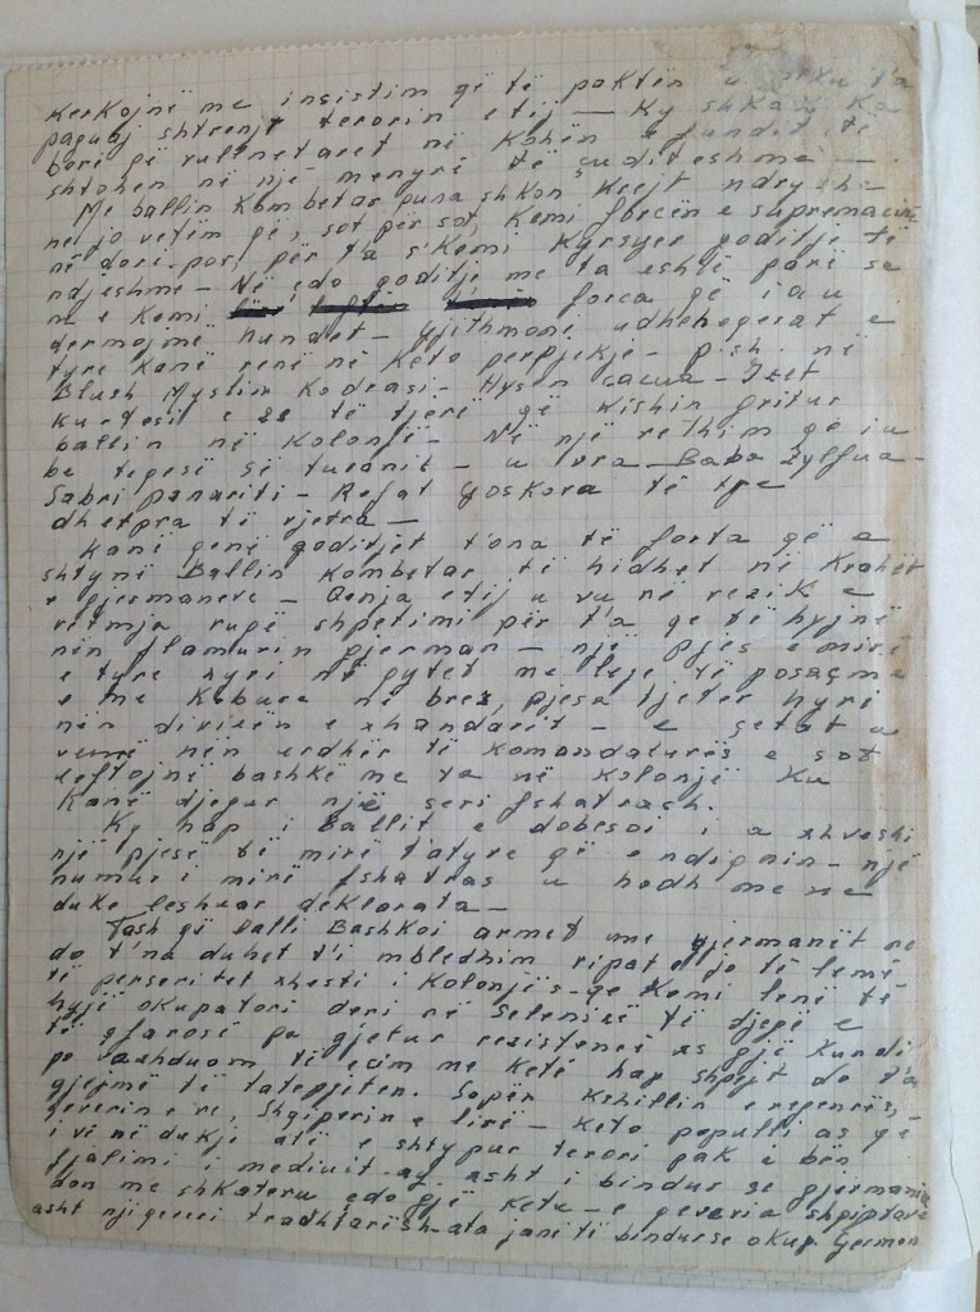 kerkojnë me insistim që të paktën u t'a
paguaj shtrenjt terorin etij — Ky shkak ka
bërë që vullnetaret në Kohën e fundit të
shtohen në një menyrë të çuditeshme —
Me ballin Kombetar puna shkon Krejt ndryshe
ne jo vetëm që, sot për sot, Kemi forcën e supremacinë
në dorë. por, për ta s'Kemi Kyrsyer goditje të
ndjeshme — Në çdo goditje me ta eshtë parë se
ne e Kemi forca që i a u
dermojmë hundet — Gjithmonë udhëheqesat e
tyre Kanë renë në Keto perpjekje — p.sh. në
Blush Myslim Kodrasi — Hysen — Izet
e 28 të tjerë që Kishin gritur
ballin në Kolonjë — Në një rethim që iu
be teqesë së turanit — u vra — Baba Zylfua —
Sabri panariti — Refat Goskova të tre
dhetpra të vjetra —
Kanë qenë goditjet t'ona të forta që e
shtynë Ballin Kombetar të hidhet në Krahët
e gjermanëve — Qenja etij u vu në rezik e
vetmja rugë shpetimi për t'a qe të hyjnë
nën flamurin gjerman — një pjes e mirë
e tyre hyri në qytet me leje të posaçme
e me Kobure në brez, pjesa tjetër hyri
nën divizën e xhandarit — e çetat u
vunë nën urdhër të Komandaturës e sot
luftojnë bashkë me ta në Kolonjë Ku
Kanë djegur një seri fshatrash.
Ky hap i Ballit e dobësoi i a xhveshi
një pjesë të mirë t'atyre që e ndiqnin — një
numur i mirë fshatras u hodh me ne
duke leshuar deklarata —
Tash që balli Bashkoi armet me gjermanët ne
do t'na duhet t'i mbledhim ripat e jo të lemë
të perseritet xhesti i Kolonjës — qe Kemi lenë të
hyjë okupatori deri në Selenizë të djegë e
të qfarosë pa gjetur rezistencë as gjë Kundi
po vazhduam të ecim me Ketë hap shpejt do t'a
gjejmë të tatepjeten. Sapër Këshillin e regjencës, —
qeverin e re, Shqiperin e lirë — Keto populli as që
i vë në dukje atë e shtypur terori pak e bën
fjalimi i mediut ay asht i bindur se gjermania
don me shkateru çdo gjë Ketu — e qeveria shqiptare
asht njiqeveri tradhtarësh — ata janë të bindur se okup. Gjerman